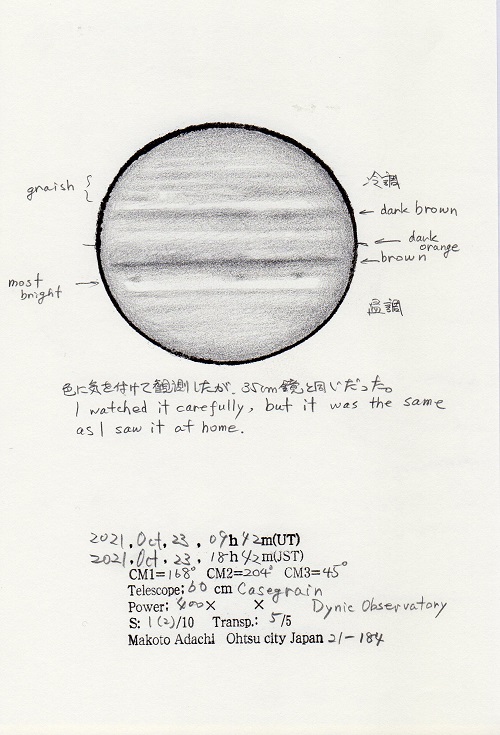 graish
冷調
← dark brown
← dark
orange
← brown
most
bright →
温調
色に気を付けて観測したが、35cm鏡と同じだった。
I watched it carefully, but it was the same
as I saw it at home.
2021, Oct, 23, 09h42m(UT)
2021, Oct, 23, 18h42m(JST)
CM1=168° CM2=204° CM3=45°
Telescope: 60 cm Casegrain
Power: 400× × Dynic Observatory
S: 1(2)/10 Transp.: 5/5
Makoto Adachi Ohtsu city Japan 21-184